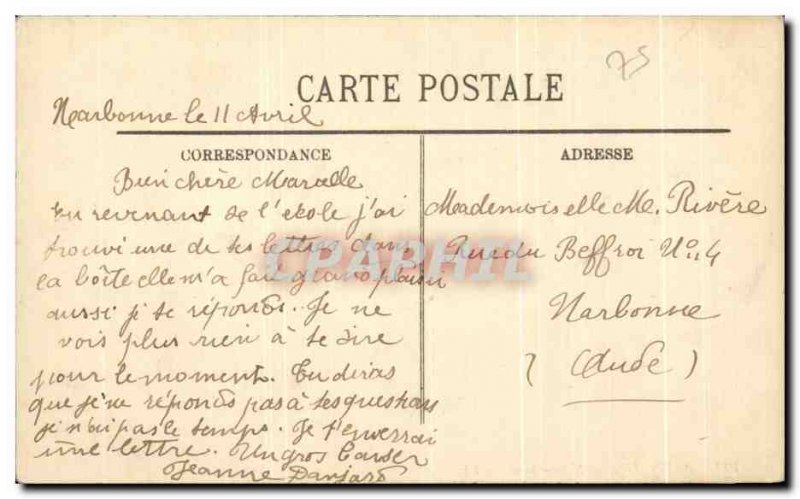 75
CARTE POSTALE
Narbonne le 11 Avril
CORRESPONDANCE
ADRESSE
Bien chère Marcelle
En revenant de l'ekole j'ai
trouvé une de tes lettres dans
la boîte elle m'a fait grand plaisir
aussi je te réponds. Je ne
vois plus rien à te dire
pour le moment. Tu diras
que je ne réponds pas à tes questions
je n'ai pas le temps. Je t'enverrai
une lettre. Un gros baiser
Jeanne Danjard
Mademoiselle M. Rivère
Rue du Beffroi No 4
Narbonne
(Aude)
CPAPHIL